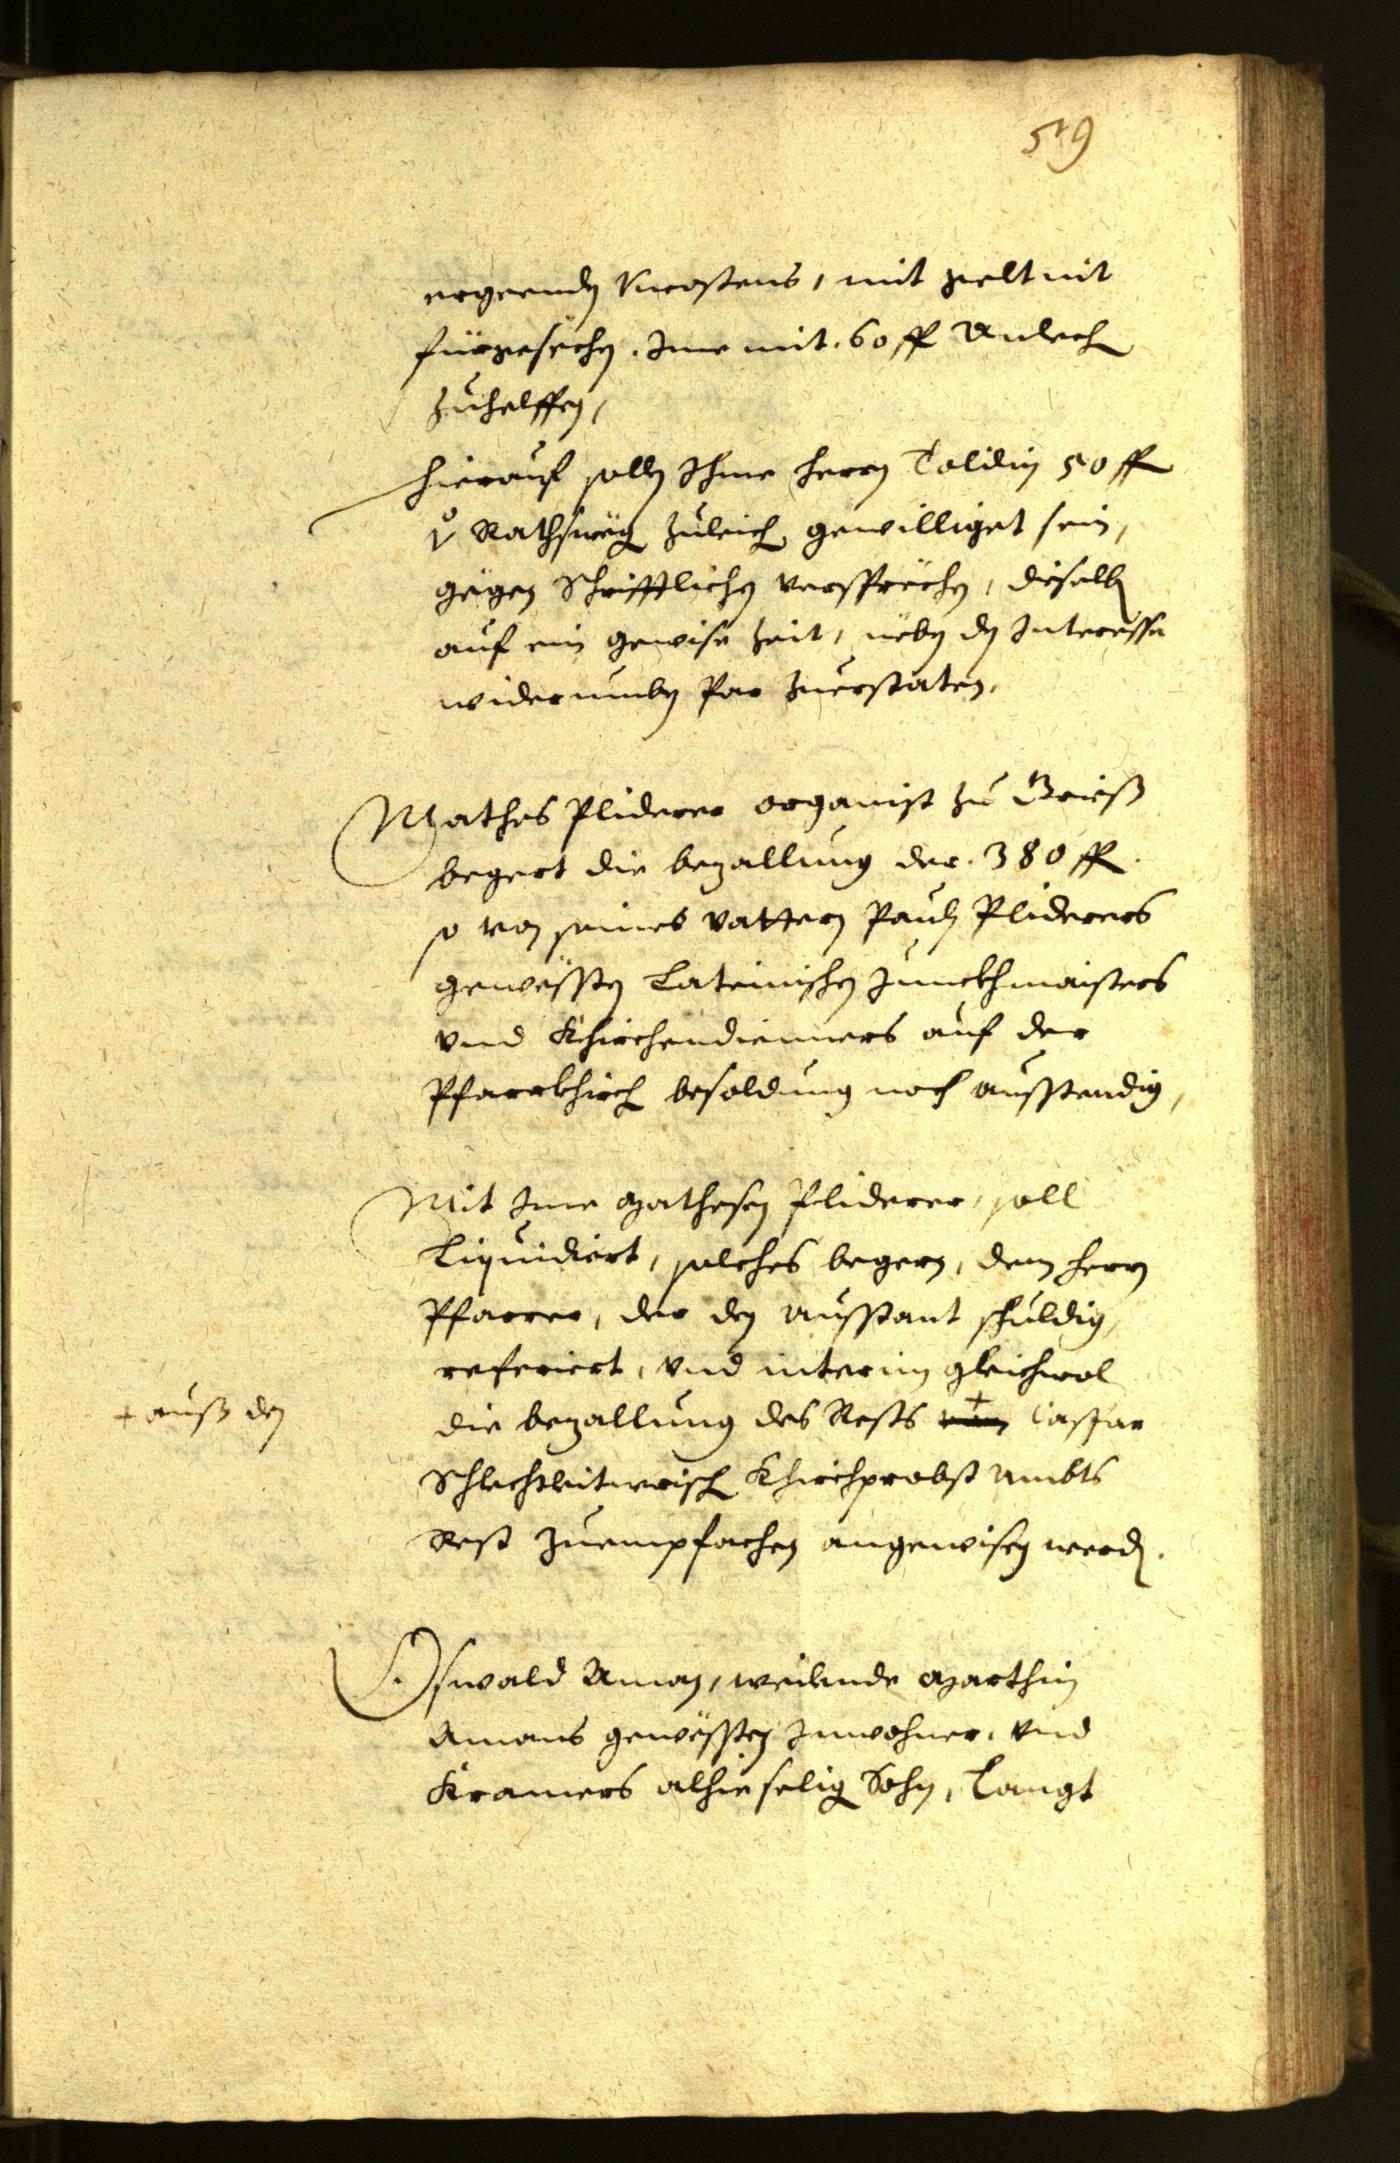 519
ergeenden Uncostens, mit gelt nit
fürgesechen. Ime mit. 60 ff Anlech
zuhelffen,
hierauf sollen Ihme herrn Toldin 50 ff
Rathsweg zuleich gewilliget sein,
gegen Schrifftlichen versprechen, dieselben
auf ein gewise zeit, neben den Interesse
widerumben par zuerstaten.
Mathes Pliderer organist zu Grieß
begert die bezallung der. 380 ff.
so von seines vattern Pauln Pliderers
gewesten Lateinischen Junckhmaisters
vnd Khirchendienners auf der
Pfarrkhirch besoldung noch ausstendig,
Mit Ime Mathesen Pliderer, soll
Liquidiert, solches begern, dem herrn
Pfarrer, der den ausstant schuldig,
referiert, vnd interim gleichwol
die bezallung des Rests + Caspar
+ auß den
Schlechtleitnerisch Khirchprobst Ambts
Rest zuempfachen angewisen werden.
Oswald Aman, weilende Marthin
Amans gewesten Inwohner, vnd
Kramers alhie selig Sohn, Langt